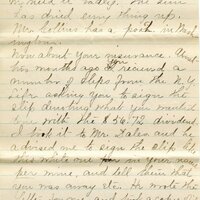 my need it badly. The sun
has dried everything up.
Mr. Collins has a posit. in Wash
ington.
Now about your insurance. About
two months ago I received a
number of slips from the N.Y.
life asking you to sign the
slip denoting what you wanted
done with the $56.72 dividend.
I took it to Mr. Dalen and he
advised me to sign the slip
this while one in your name
per mine, and tell them that
you was away etc. He wrote the
letter for me and